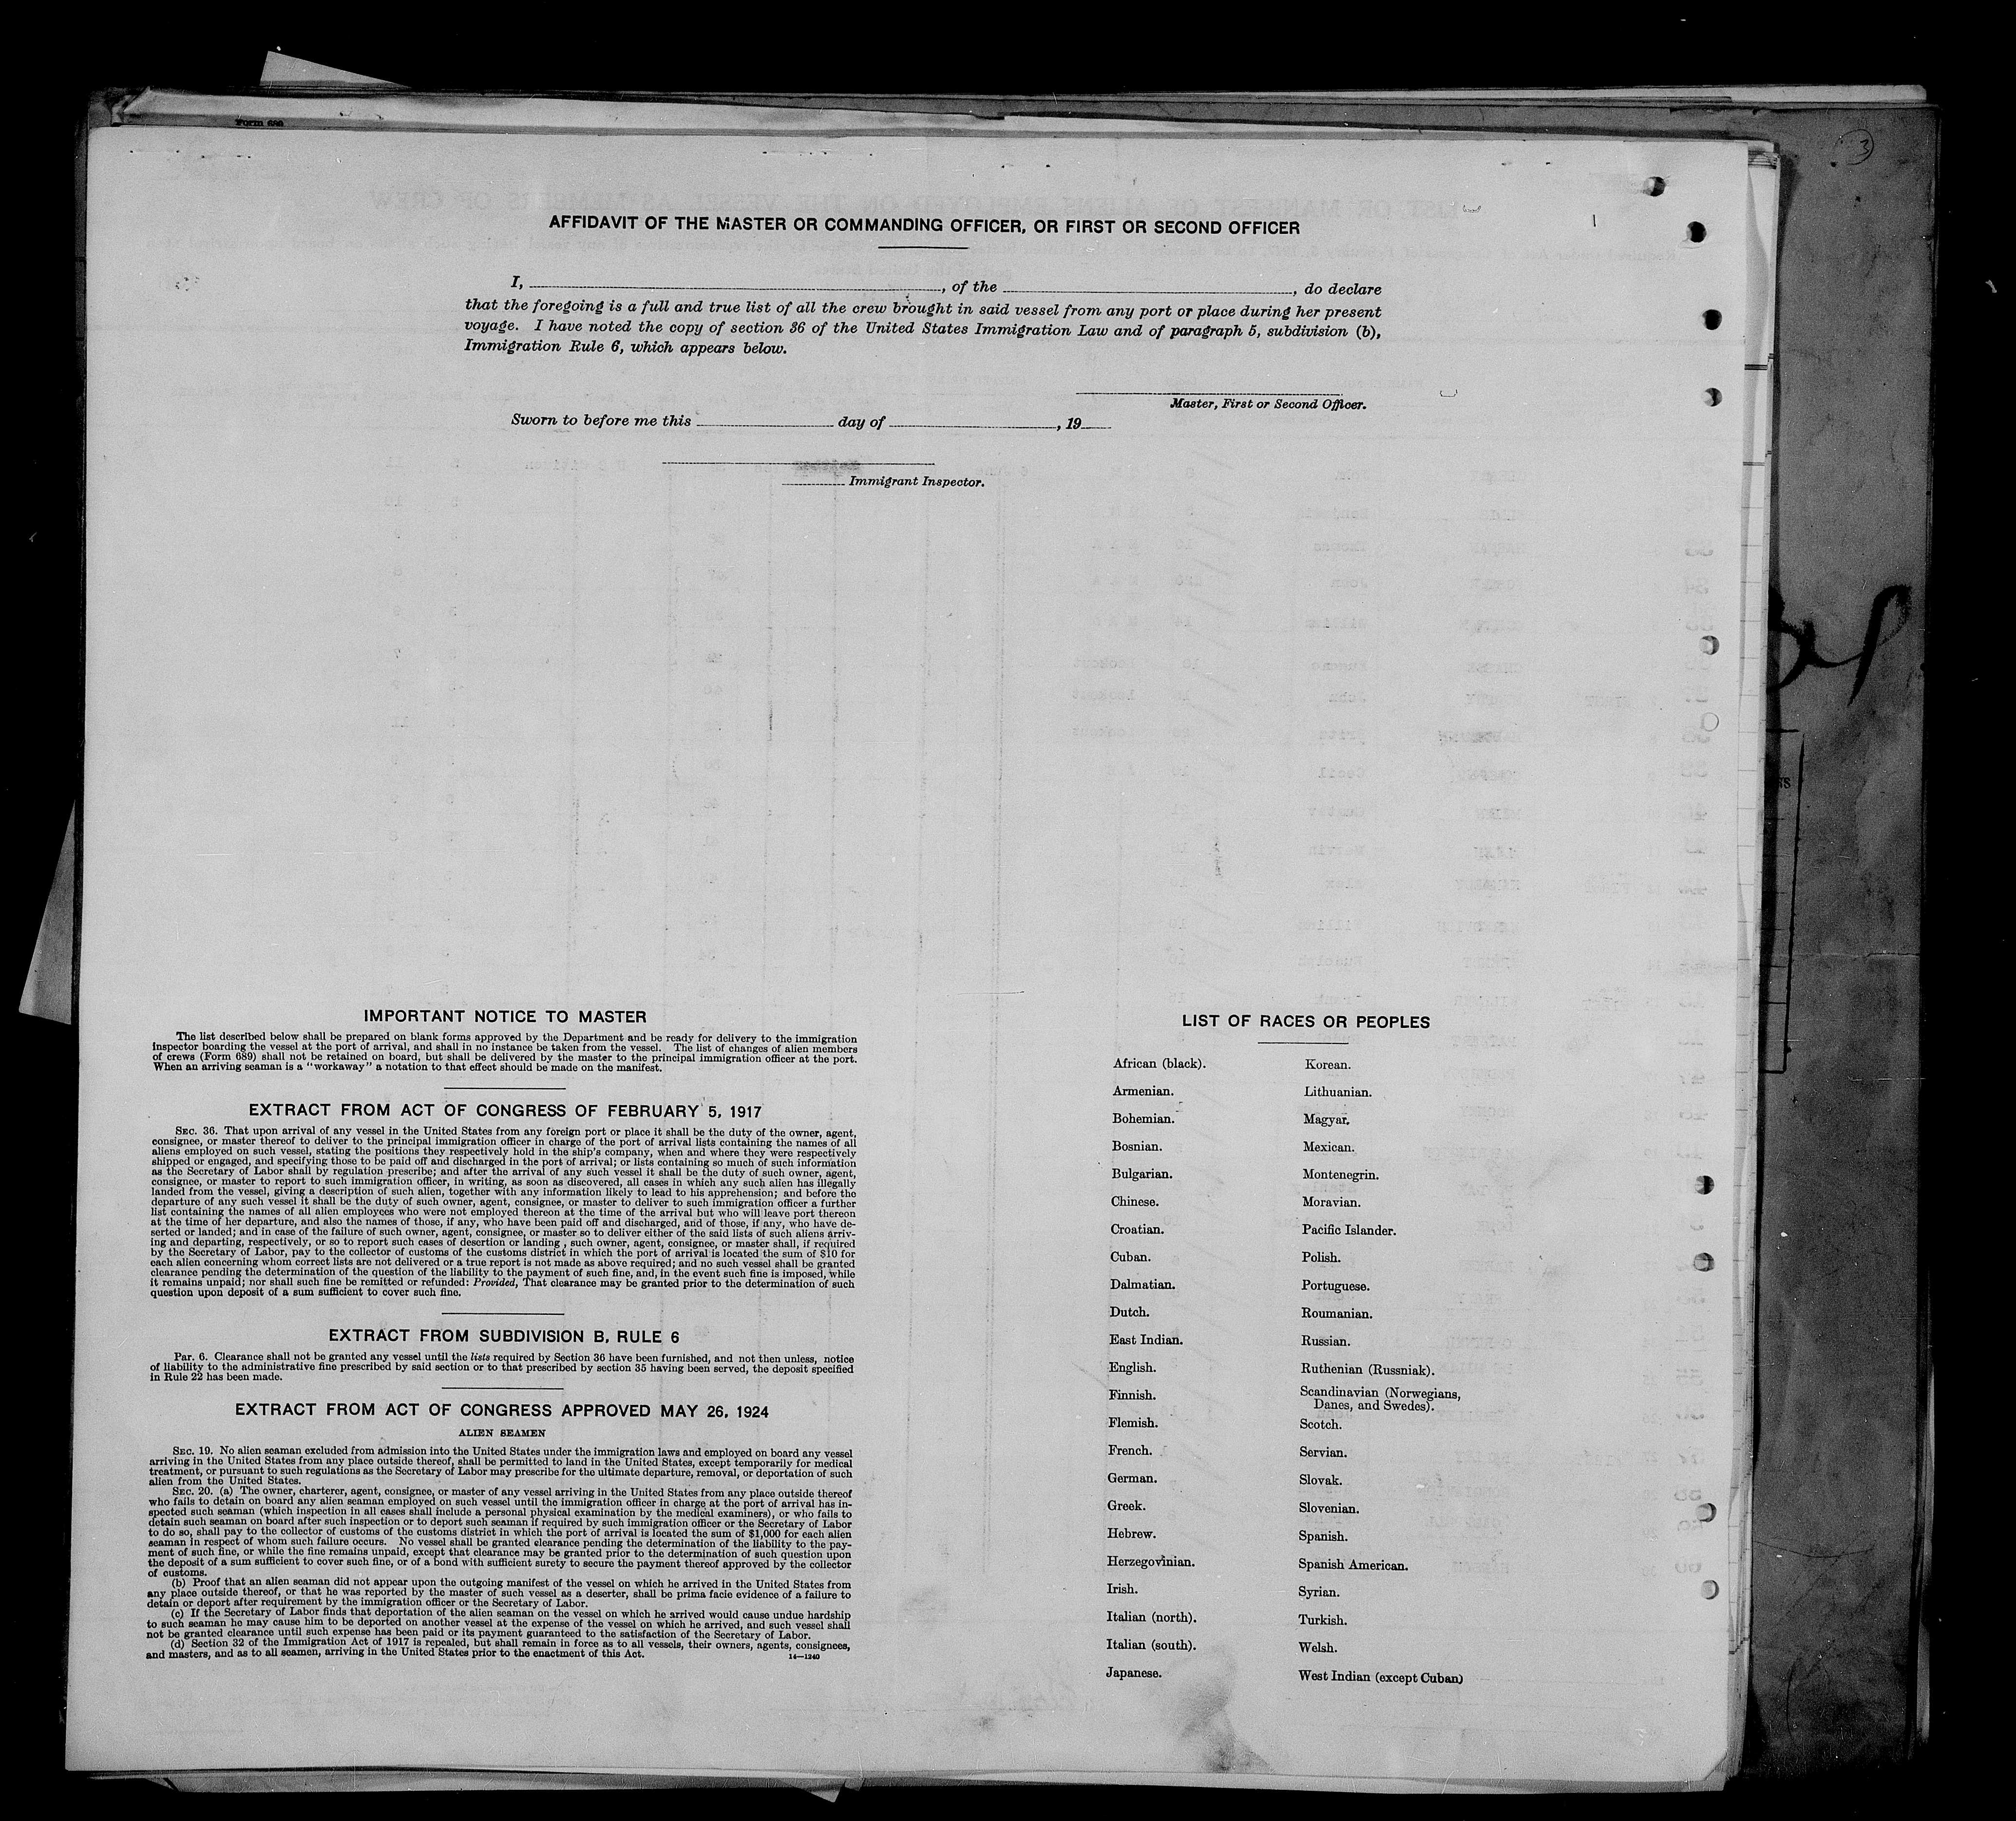 Form 689
3
AFFIDAVIT OF THE MASTER OR COMMANDING OFFICER, OR FIRST OR SECOND OFFICER
I, , of the , do declare
that the foregoing is a full and true list of all the crew brought in said vessel from any port or place during her present
voyage. I have noted the copy of section 36 of the United States Immigration Law and of paragraph 5, subdivision (b),
Immigration Rule 6, which appears below.
Master, First or Second Officer.
Sworn to before me this day of , 19
Immigrant Inspector.
IMPORTANT NOTICE TO MASTER
The list described below shall be prepared on blank forms approved by the Department and be ready for delivery to the immigration
inspector boarding the vessel at the port of arrival, and shall in no instance be taken from the vessel. The list of changes of alien members
of crews (Form 689) shall not be retained on board, but shall be delivered by the master to the principal immigration officer at the port.
When an arriving seaman is a "workaway" a notation to that effect should be made on the manifest.
EXTRACT FROM ACT OF CONGRESS OF FEBRUARY 5, 1917
SEC. 36. That upon arrival of any vessel in the United States from any foreign port or place it shall be the duty of the owner, agent,
consignee, or master thereof to deliver to the principal immigration officer in charge of the port of arrival lists containing the names of all
aliens employed on such vessel, stating the positions they respectively hold in the ship's company, when and where they were respectively
shipped or engaged, and specifying those to be paid off and discharged in the port of arrival; or lists containing so much of such information
as the Secretary of Labor shall by regulation prescribe; and after the arrival of any such vessel it shall be the duty of such owner, agent,
consignee, or master to report to such immigration officer, in writing, as soon as discovered, all cases in which any such alien has illegally
landed from the vessel, giving a description of such alien, together with any information likely to lead to his apprehension; and before the
departure of any such vessel it shall be the duty of such owner, agent, consignee, or master to deliver to such immigration officer a further
list containing the names of all alien employees who were not employed thereon at the time of the arrival but who will leave port thereon
at the time of her departure, and also the names of those, if any, who have been paid off and discharged, and of those, if any, who have de-
serted or landed; and in case of the failure of such owner, agent, consignee, or master so to deliver either of the said lists of such aliens arriv-
ing and departing, respectively, or so to report such cases of desertion or landing , such owner, agent, consignee, or master shall, if required
by the Secretary of Labor, pay to the collector of customs of the customs district in which the port of arrival is located the sum of $10 for
each alien concerning whom correct lists are not delivered or a true report is not made as above required; and no such vessel shall be granted
clearance pending the determination of the question of the liability to the payment of such fine, and, in the event such fine is imposed, while
it remains unpaid; nor shall such fine be remitted or refunded: Provided, That clearance may be granted prior to the determination of such
question upon deposit of a sum sufficient to cover such fine.
EXTRACT FROM SUBDIVISION B, RULE 6
Par. 6. Clearance shall not be granted any vessel until the lists required by Section 36 have been furnished, and not then unless, notice
of liability to the administrative fine prescribed by said section or to that prescribed by section 35 having been served, the deposit specified
in Rule 22 has been made.
EXTRACT FROM ACT OF CONGRESS APPROVED MAY 26, 1924
ALIEN SEAMEN
SEC. 19. No alien seaman excluded from admission into the United States under the immigration laws and employed on board any vessel
arriving in the United States from any place outside thereof, shall be permitted to land in the United States, except temporarily for medical
treatment, or pursuant to such regulations as the Secretary of Labor may prescribe for the ultimate departure, removal, or deportation of such
alien from the United States.
SEC. 20. (a) The owner, charterer, agent, consignee, or master of any vessel arriving in the United States from any place outside thereof
who fails to detain on board any alien seaman employed on such vessel until the immigration officer in charge at the port of arrival has in-
spected such seaman (which inspection in all cases shall include a personal physical examination by the medical examiners), or who fails to
detain such seaman on board after such inspection or to deport such seaman if required by such immigration officer or the Secretary of Labor
to do so, shall pay to the collector of customs of the customs district in which the port of arrival is located the sum of $1,000 for each alien
seaman in respect of whom such failure occurs. No vessel shall be granted clearance pending the determination of the liability to the pay-
ment of such fine, or while the fine remains unpaid, except that clearance may be granted prior to the determination of such question upon
the deposit of a sum sufficient to cover such fine, or of a bond with sufficient surety to secure the payment thereof approved by the collector
of customs.
(b) Proof that an alien seaman did not appear upon the outgoing manifest of the vessel on which he arrived in the United States from
any place outside thereof, or that he was reported by the master of such vessel as a deserter, shall be prima facie evidence of a failure to
detain or deport after requirement by the immigration officer or the Secretary of Labor.
(c) If the Secretary of Labor finds that deportation of the alien seaman on the vessel on which he arrived would cause undue hardship
to such seaman he may cause him to be deported on another vessel at the expense of the vessel on which he arrived, and such vessel shall
not be granted clearance until such expense has been paid or its payment guaranteed to the satisfaction of the Secretary of Labor.
(d) Section 32 of the Immigration Act of 1917 is repealed, but shall remain in force as to all vessels, their owners, agents, consignees,
and masters, and as to all seamen, arriving in the United States prior to the enactment of this Act.
14—1240
LIST OF RACES OR PEOPLES
African (black).
Armenian.
Bohemian.
Bosnian.
Bulgarian.
Chinese.
Croatian.
Cuban.
Dalmatian.
Dutch.
East Indian.
English.
Finnish.
Flemish.
French.
German.
Greek.
Hebrew.
Herzegovinian.
Irish.
Italian (north).
Italian (south).
Japanese.
Korean.
Lithuanian.
Magyar.
Mexican.
Montenegrin.
Moravian.
Pacific Islander.
Polish.
Portuguese.
Roumanian.
Russian.
Ruthenian (Russniak).
Scandinavian (Norwegians,
Danes, and Swedes).
Scotch.
Servian.
Slovak.
Slovenian.
Spanish.
Spanish American.
Syrian.
Turkish.
Welsh.
West Indian (except Cuban)